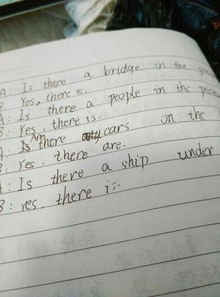 A: Is there a bridge in the
B: Yes, there is.
A: Is there a people in the
B: Yes, there is.
A Are there any cars on the
B: Yes. there are.
A: Is there a ship under
B: yes. there is.